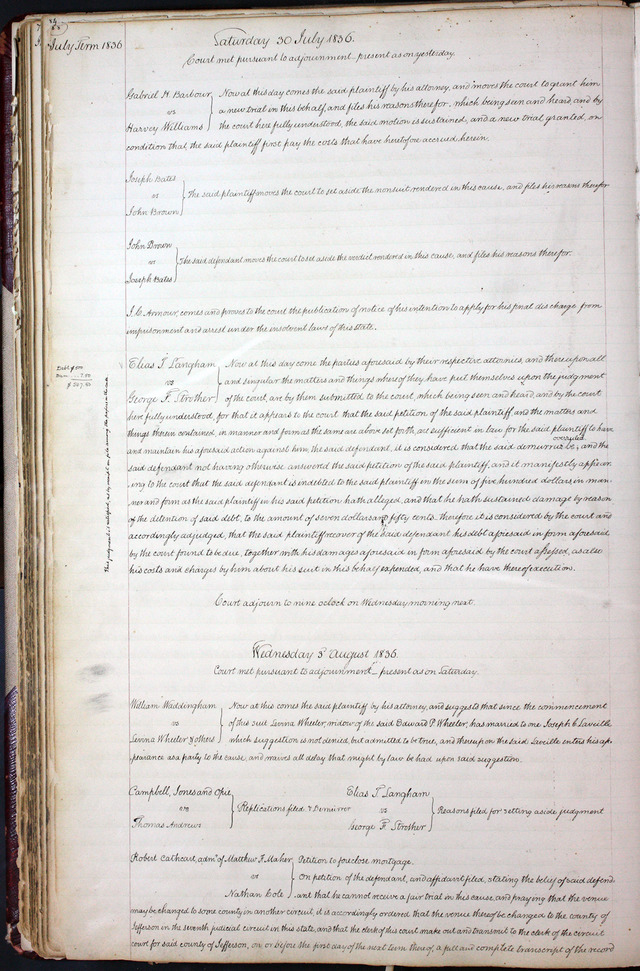 July Term 1836
Saturday 30 July 1836.
Court met pursuant to adjournment present as on yesterday.
Gabriel H. Barbour
vs
Harvey Williams
Now at this day comes the said plaintiff by his attorney, and moves the court to grant him
a new trial in this behalf, and files his reasons therefor, which being seen and heard, and by
the court here fully understood, the said motion is sustained, and a new trial granted, on
condition that the said plaintiff first pay the costs that have heretofore accrued herein.
Joseph Bates
vs
John Brown
The said plaintiff moves the court to set aside the nonsuit rendered in this cause, and files his reasons therefor
John Brown
vs
Joseph Bates
The said defendant moves the court to set aside the verdict rendered in this cause, and files his reasons therefor.
J. C. Armour, comes and proves to the court the publication of notice of his intention to apply for his final discharge from
imprisonment and arrest under the insolvent laws of this state.
Debt $500
7.50
$507.50
Elias T Langham
vs
George F. Strother
Now at this day come the parties aforesaid by their respective attornies, and thereupon all
and singular the matters and things whereof they have put themselves upon the judgment
of the court, are by them submitted to the court, which being seen and heard, and by the court
here fully understood, for that it appears to the court that the said petition of the said plaintiff, and the matters and
things therein contained, in manner and form as the same are above set forth, are sufficient in law for the said plaintiff to have
and maintain his aforesaid action against him, the said defendant, it is considered that the said demurrer be overruled, and the
said defendant not having otherwise answered the said petition of the said plaintiff, and it manifestly appear
ing to the court that the said defendant is indebted to the said plaintiff in the sum of five hundred dollars in man-
ner and form as the said plaintiff in his said petition hath alleged, and that he hath sustained damage by reason
of the detention of said debt, to the amount of seven dollars and fifty cents. therefore it is considered by the court and
accordingly adjudged, that the said plaintiff recover of the said defendant his debt aforesaid in form aforesaid
by the court found to be due, together with his damages aforesaid in form aforesaid by the court assessed, as also
his costs and charges by him about his suit in this behalf expended, and that he have thereof execution.
This judgment is satisfied, as
Court adjourn to nine oclock on Wednesday morning next.
Wednesday 3d August 1836.
Court met pursuant to adjournment present as on Saturday.
William Waddingham
vs
Levina Wheeler & others
Now at this comes the said plaintiff by his attorney, and suggests that since the commencement
of this suit Levina Wheeler, widow of the said Edward P. Wheeler, has married to one Joseph C Laville
which suggestion is not denied, but admitted to be true, and thereupon the said Laville enters his ap-
pearance as a party to the cause, and waives all delay that might by law be had upon said suggestion.
Campbell, Jones and Opie
vs
Thomas Andrews
Replications filed & Demurrer
Elias T Langham
vs
George F Strother
Reasons filed for setting aside judgment
Robert Cathcart, admr. of Matthew F. Maher
vs
Nathan Cole
Petition to foreclose mortgage.
On petition of the defendant, and affidavit filed, stating the belief of said defend-
ant that he cannot receive a fair trial in this cause, and praying that the venue
may be changed to some county in another circuit, it is accordingly ordered that the venue thereof be changed to the county of
Jefferson in the seventh judicial circuit in this state, and that the clerk of this court make out and transmit to the clerk of the circuit
court for said county of Jefferson, on or before the first day of the next term thereof, a full and complete transcript of the record